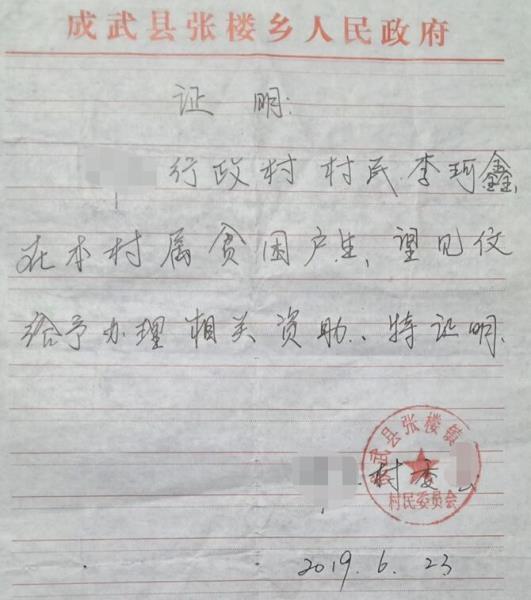 成武县张楼乡人民政府
证 明:
行政村 村民 李珂鑫,
在本村属贫困户生,望见仪
给予办理相关资助、特证明.
武县张楼镇
村委
村民委员会
2019.6.23